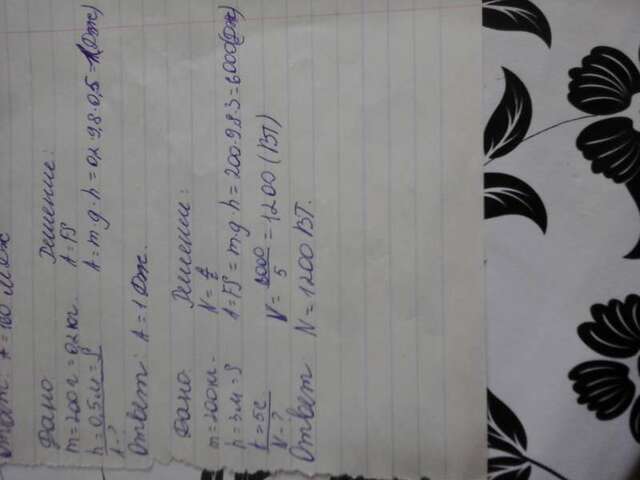 Ответ: A = 160 МДж
Дано Решение:
m = 200 г = 0,2 кг. A = FS
h = 0,5 м = S A = m·g·h = 0,2·9,8·0,5 = 1(Дж)
A - ?
Ответ: A = 1 Дж.
Дано: Решение:
m = 200 кг. N = A/t
h = 3 м = S A = FS = m·g·h = 200·9,8·3 = 6000(Дж)
t = 5с
N - ? N = 6000/5 = 1200 (ВТ)
Ответ: N = 1200 ВТ.